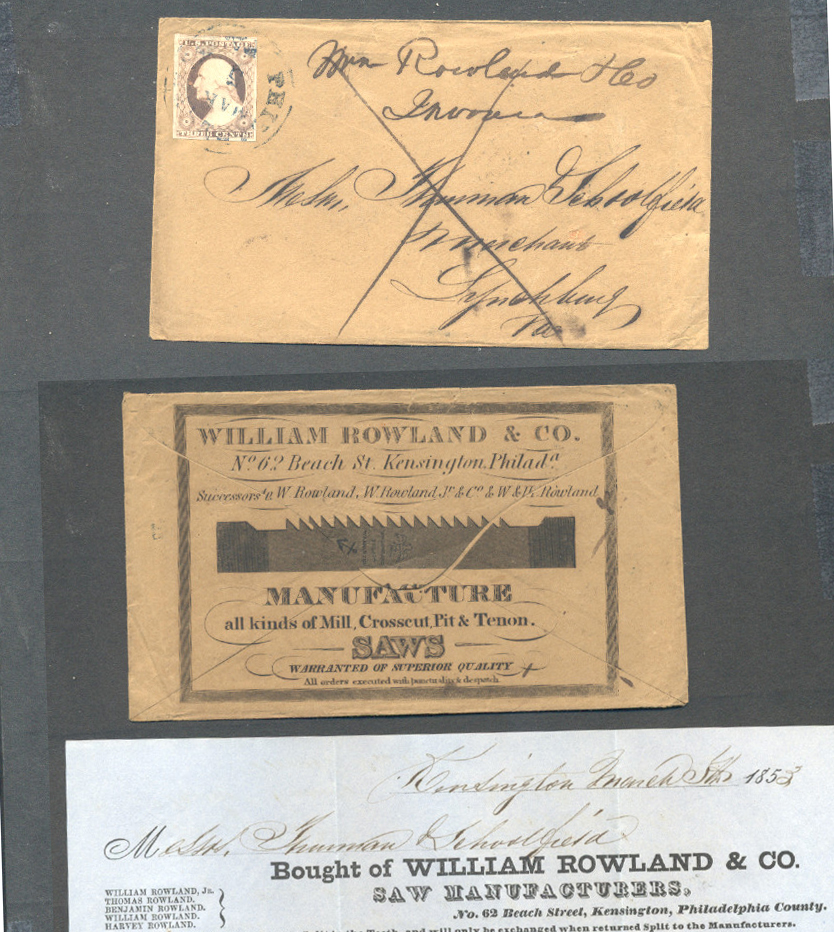 U.S. POSTAGE
THREE CENTS
PHI
MAR
Wm Rowland & Co
Invoice
Messrs. Thurman & Schoolfield
Merchants
Lynchburg
Va
WILLIAM ROWLAND & CO.
No. 62 Beach St. Kensington, Philada.
Successors to W Rowland, W. Rowland Jr. & Co & W & H. Rowland
MANUFACTURE
all kinds of Mill, Crosscut, Pit & Tenon.
SAWS
WARRANTED OF SUPERIOR QUALITY
All orders executed with punctuality & despatch.
Kensington March 5th 1853
Messrs. Thurman & Schoolfield
Bought of WILLIAM ROWLAND & CO.
SAW MANUFACTURERS,
No. 62 Beach Street, Kensington, Philadelphia County.
WILLIAM ROWLAND, Jr.
THOMAS ROWLAND.
BENJAMIN ROWLAND.
WILLIAM ROWLAND.
HARVEY ROWLAND.
in the Teeth, and will only be exchanged when returned Split to the Manufacturers.